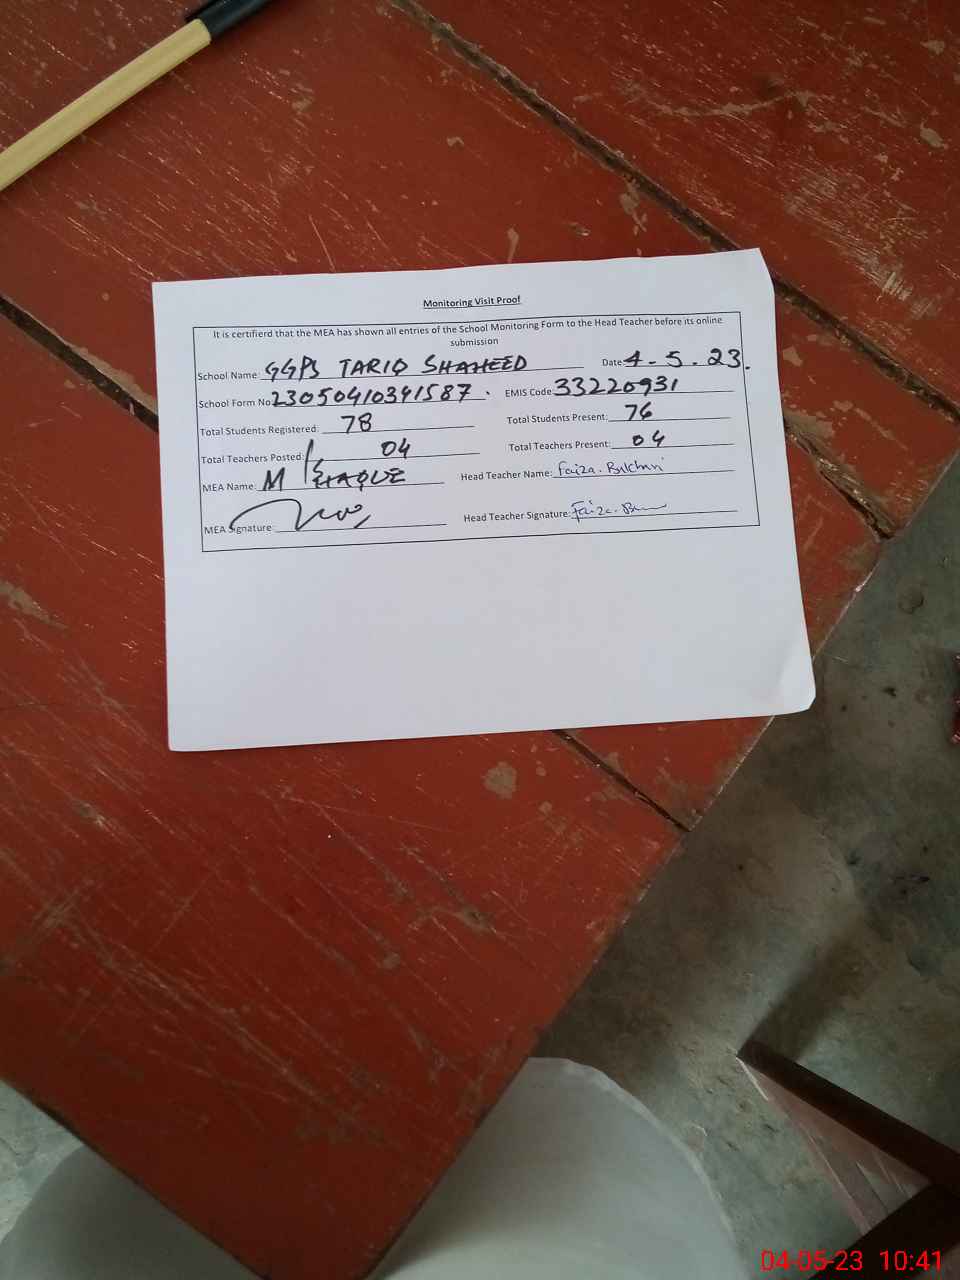 Monitoring Visit Proof
It is certifierd that the MEA has shown all entries of the School Monitoring Form to the Head Teacher before its online
submission
School Name: GGPS TARIQ SHAHEED Date: 4-5.23.
School Form No 23050410341587. EMIS Code 33220931
Total Students Registered: 78 Total Students Present: 76
Total Teachers Posted: 04 Total Teachers Present: 04
MEA Name: M Head Teacher Name: Faiza. Bukhari
MEA Signature: Head Teacher Signature: Faiza.
04-05-23 10:41